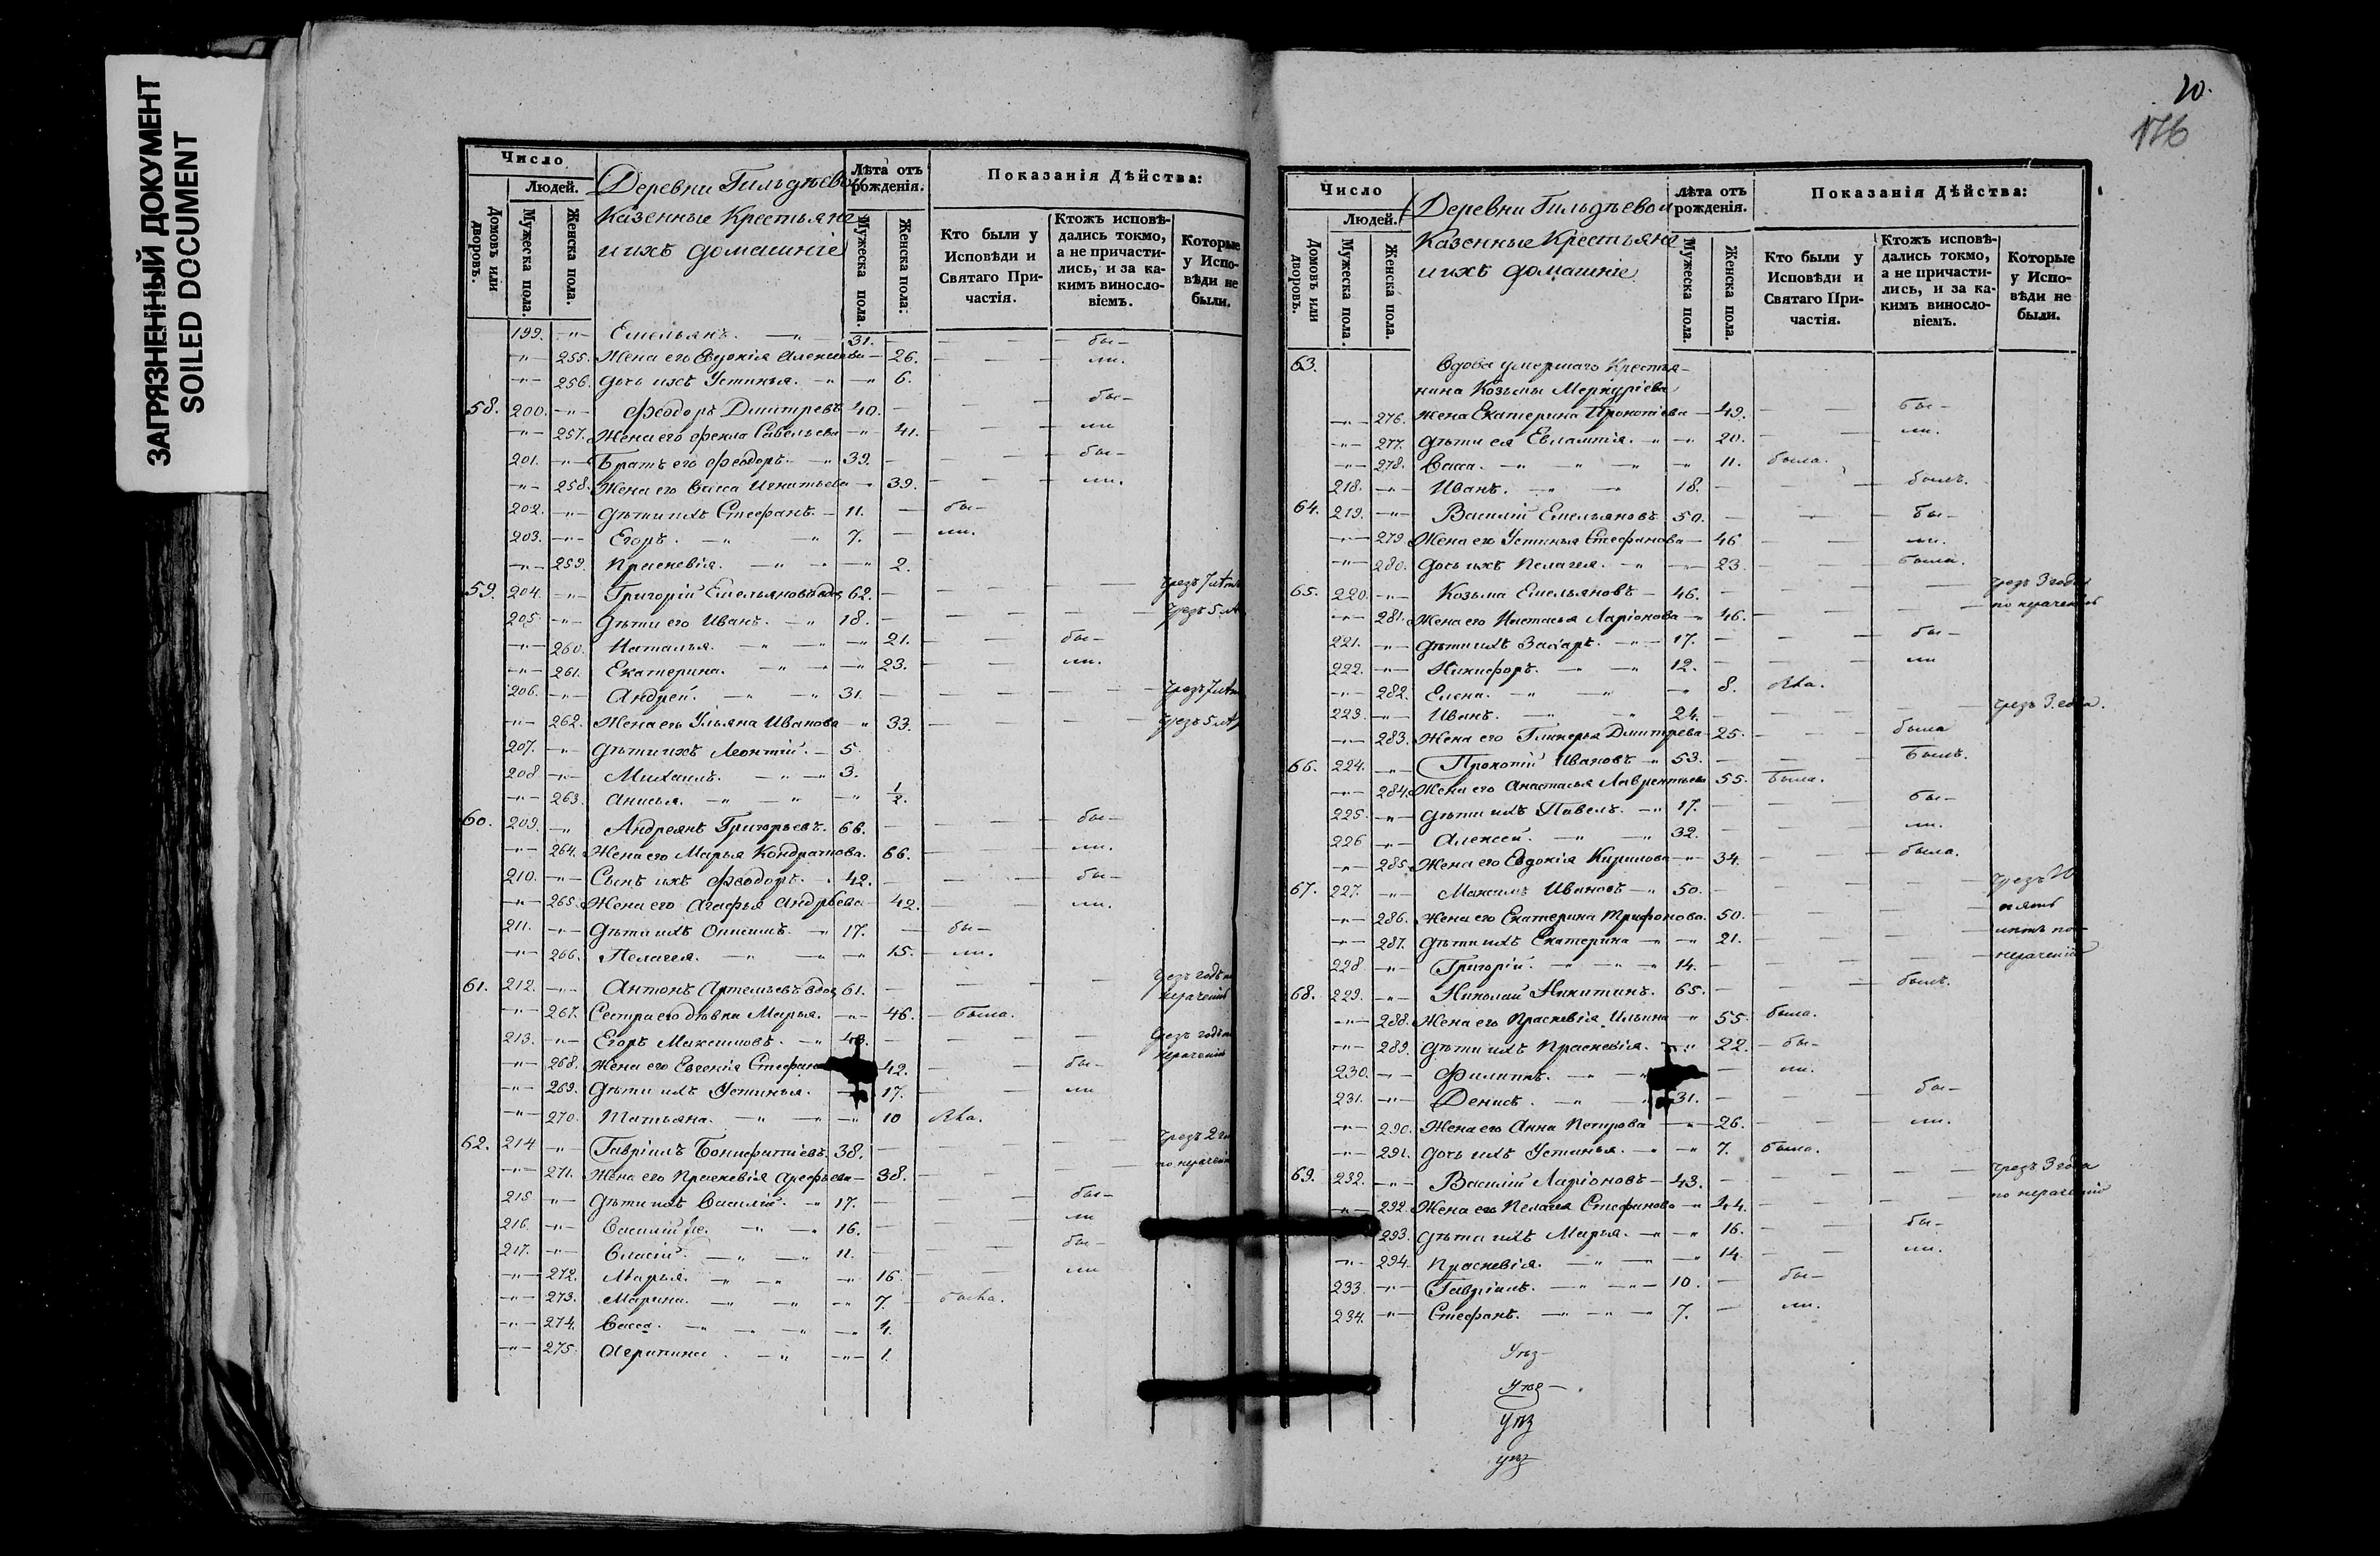 ЗАГРЯЗНЕННЫЙ ДОКУМЕНТ
SOILED DOCUMENT
Число
Людей.
Домовъ или дворовъ.
Мужеска пола.
Женска пола.
Деревни Гильдѣевой
Казенные Крестьяне
и ихъ домашніе
Лѣта отъ рожденія.
Мужеска пола.
Женска пола:
Показанія Дѣйства:
Кто были у Исповѣди и Святаго Причастія.
Ктожъ исповѣдались токмо, а не причастились, и за какимъ винословіемъ.
Которые у Исповѣди не были.
199. Емельянъ. 31. бы-
255. Жена его Евдокія Алексѣева 26. ли.
256. дочь ихъ Устинья. 6.
58. 200. Феодоръ Дмитревъ 40. бы-
257. Жена его Фекла Савельева 41. ли
201. Братъ его Феодоръ 39. бы-
258. Жена его Васса Игнатьева 39. ли.
202. Дѣти ихъ Стефанъ. 11. бы-
203. Егоръ. 7. ли.
259. Прасковія. 2.
59. 204. Григорій Емельяновъ вдов 62. чрезъ 7 лѣт
205. Дѣти его Иванъ. 18. чрезъ 5 лѣ
260. Наталья. 21. бы-
261. Екатерина. 23. ли.
206. Андрей. 31. чрезъ 7 лѣт
262. Жена его Ульяна Иванова 33. чрезъ 5 лѣ
207. Дѣти ихъ Леонтій. 5.
208 Михаилъ. 3.
263. Анисья. 1/2.
60. 209. Андреянъ Григорьевъ. 66. бы-
264. Жена его Марья Кондратова. 66. ли.
210. Сынъ ихъ Феодоръ. 42. бы-
265. Жена его Агафья Андрѣева 42. ли.
211. Дѣти ихъ Онисимъ. 17. бы-
266. Пелагея. 15. ли.
61. 212. Антонъ Артемьевъ вдов 61. чрезъ годъ по
нераченію
267. Сестра его дѣвка Марья. 46. была.
213. Егоръ Максимовъ. 43. чрезъ годъ по
268. Жена его Евгенія Стефан 42. бы- нераченію
269. Дѣти ихъ Устинья. 17. ли
270. Татьяна. 10 была.
62. 214 Гавріилъ Бонифатіевъ. 38. чрезъ 2 го
271. Жена его Прасковія Арефьева 38. по нерачені
215 Дѣти ихъ Василій. 17. бы-
216. Василій же. 16. ли
217. Власій. 11. бы-
272. Марья. 16. ли
273. Марина. 7. была.
274. Васса. 4.
275. 1.
20.
176
Число
Людей.
Домовъ или дворовъ.
Мужеска пола.
Женска пола.
Деревни Гильдѣевой
Казенные Крестьяне
и ихъ домашніе
лѣта отъ рожденія.
Мужеска пола.
Женска пола.
Показанія Дѣйства:
Кто были у Исповѣди и Святаго Причастія.
Ктожъ исповѣдались токмо, а не причастились, и за какимъ винословіемъ.
Которые у Исповѣди не были.
63. Вдова умершаго Крестья-
нина Козьмы Меркуріева
276. жена Екатерина Прокопіева 49. бы-
277. Дѣти ея Евлампія. 20. ли.
278. Васса. 11. была.
218. Иванъ. 18. былъ.
64. 219. Василій Емельяновъ 50. бы-
279. Жена его Устинья Стефанова 46 ли.
280. Дочь ихъ Пелагея. 23. была.
65. 220. Козьма Емельяновъ 46. чрезъ 3 года
281. Жена его Настасья Ларіонова 46. по нераченію
221. Дѣти ихъ Захаръ. 17. бы-
222. Никифоръ. 12. ли
282. Елена. 8. была.
223. Иванъ. 24. чрезъ 3 года.
283. Жена его Гликерья Дмитрева 25. была
66. 224. Прокопій Ивановъ 53. Былъ.
284. Жена его Анастасья Лаврентьева 55. была.
225. Дѣти ихъ Павелъ. 17. бы-
226 Алексей. 32. ли.
285. Жена его Евдокія Кирилова 34. была.
67. 227. Максимъ Ивановъ 50. чрезъ
286. Жена его Екатерина Трифонова. 50. пять
287. Дѣти ихъ Екатерина 21. лѣтъ по
228 Григорій. 14. нераченію
68. 229. Николай Никитинъ. 65. былъ.
288. Жена его Прасковія Ильина 55. была.
289. Дѣти ихъ Прасковія. 22. бы-
230. Филиппъ. ли.
231. Денисъ. 31. бы-
290. Жена его Анна Петрова 26. ли.
291. дочь ихъ Устинья. 7. была.
69. 232. Василій Ларіоновъ 43. чрезъ 3 года
292. Жена его Пелагея Стефанова 44. по нераченію
293. Дѣти ихъ Марья. 16. бы-
294. Прасковія. 14. ли.
233. Гавріилъ. 10. бы-
234. Стефанъ. 7. ли.